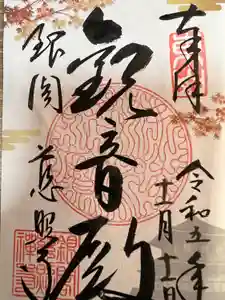 奉拝
令和五年
十一月十二日
観音殿
銀閣
慈照寺